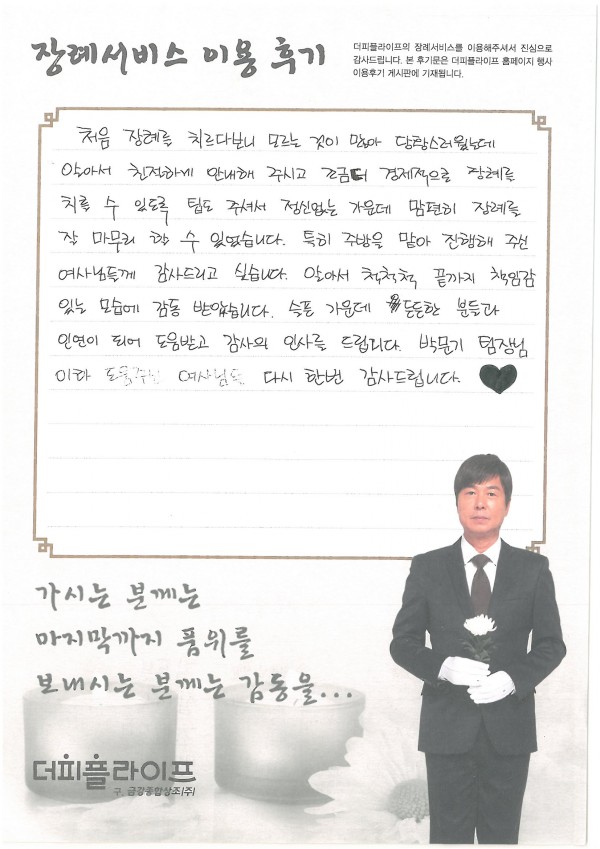 장례서비스 이용 후기
더피플라이프의 장례서비스를 이용해주셔서 진심으로
감사드립니다. 본 후기문은 더피플라이프 홈페이지 행사
이용후기 게시판에 기재됩니다.
처음 장례를 치르다보니 모르는 것이 많아 당황스러웠는데
알아서 친절하게 안내해 주시고 조금더 경제적으로 장례를
치를 수 있도록 팁도 주셔서 정신없는 가운데 맘편히 장례를
잘 마무리 할 수 있었습니다. 특히 주방을 맡아 진행해 주신
여사님들께 감사드리고 싶습니다. 알아서 척척척 끝까지 책임감
있는 모습에 감동 받았습니다. 슬픈 가운데 든든한 분들과
인연이 되어 도움받고 감사의 인사를 드립니다. 박문기 팀장님
이하 도움주신 여사님들 다시 한번 감사드립니다. ♥
가시는 분께는
마지막까지 품위를
보내시는 분께는 감동을...
더피플라이프
구. 금강종합상조(주)